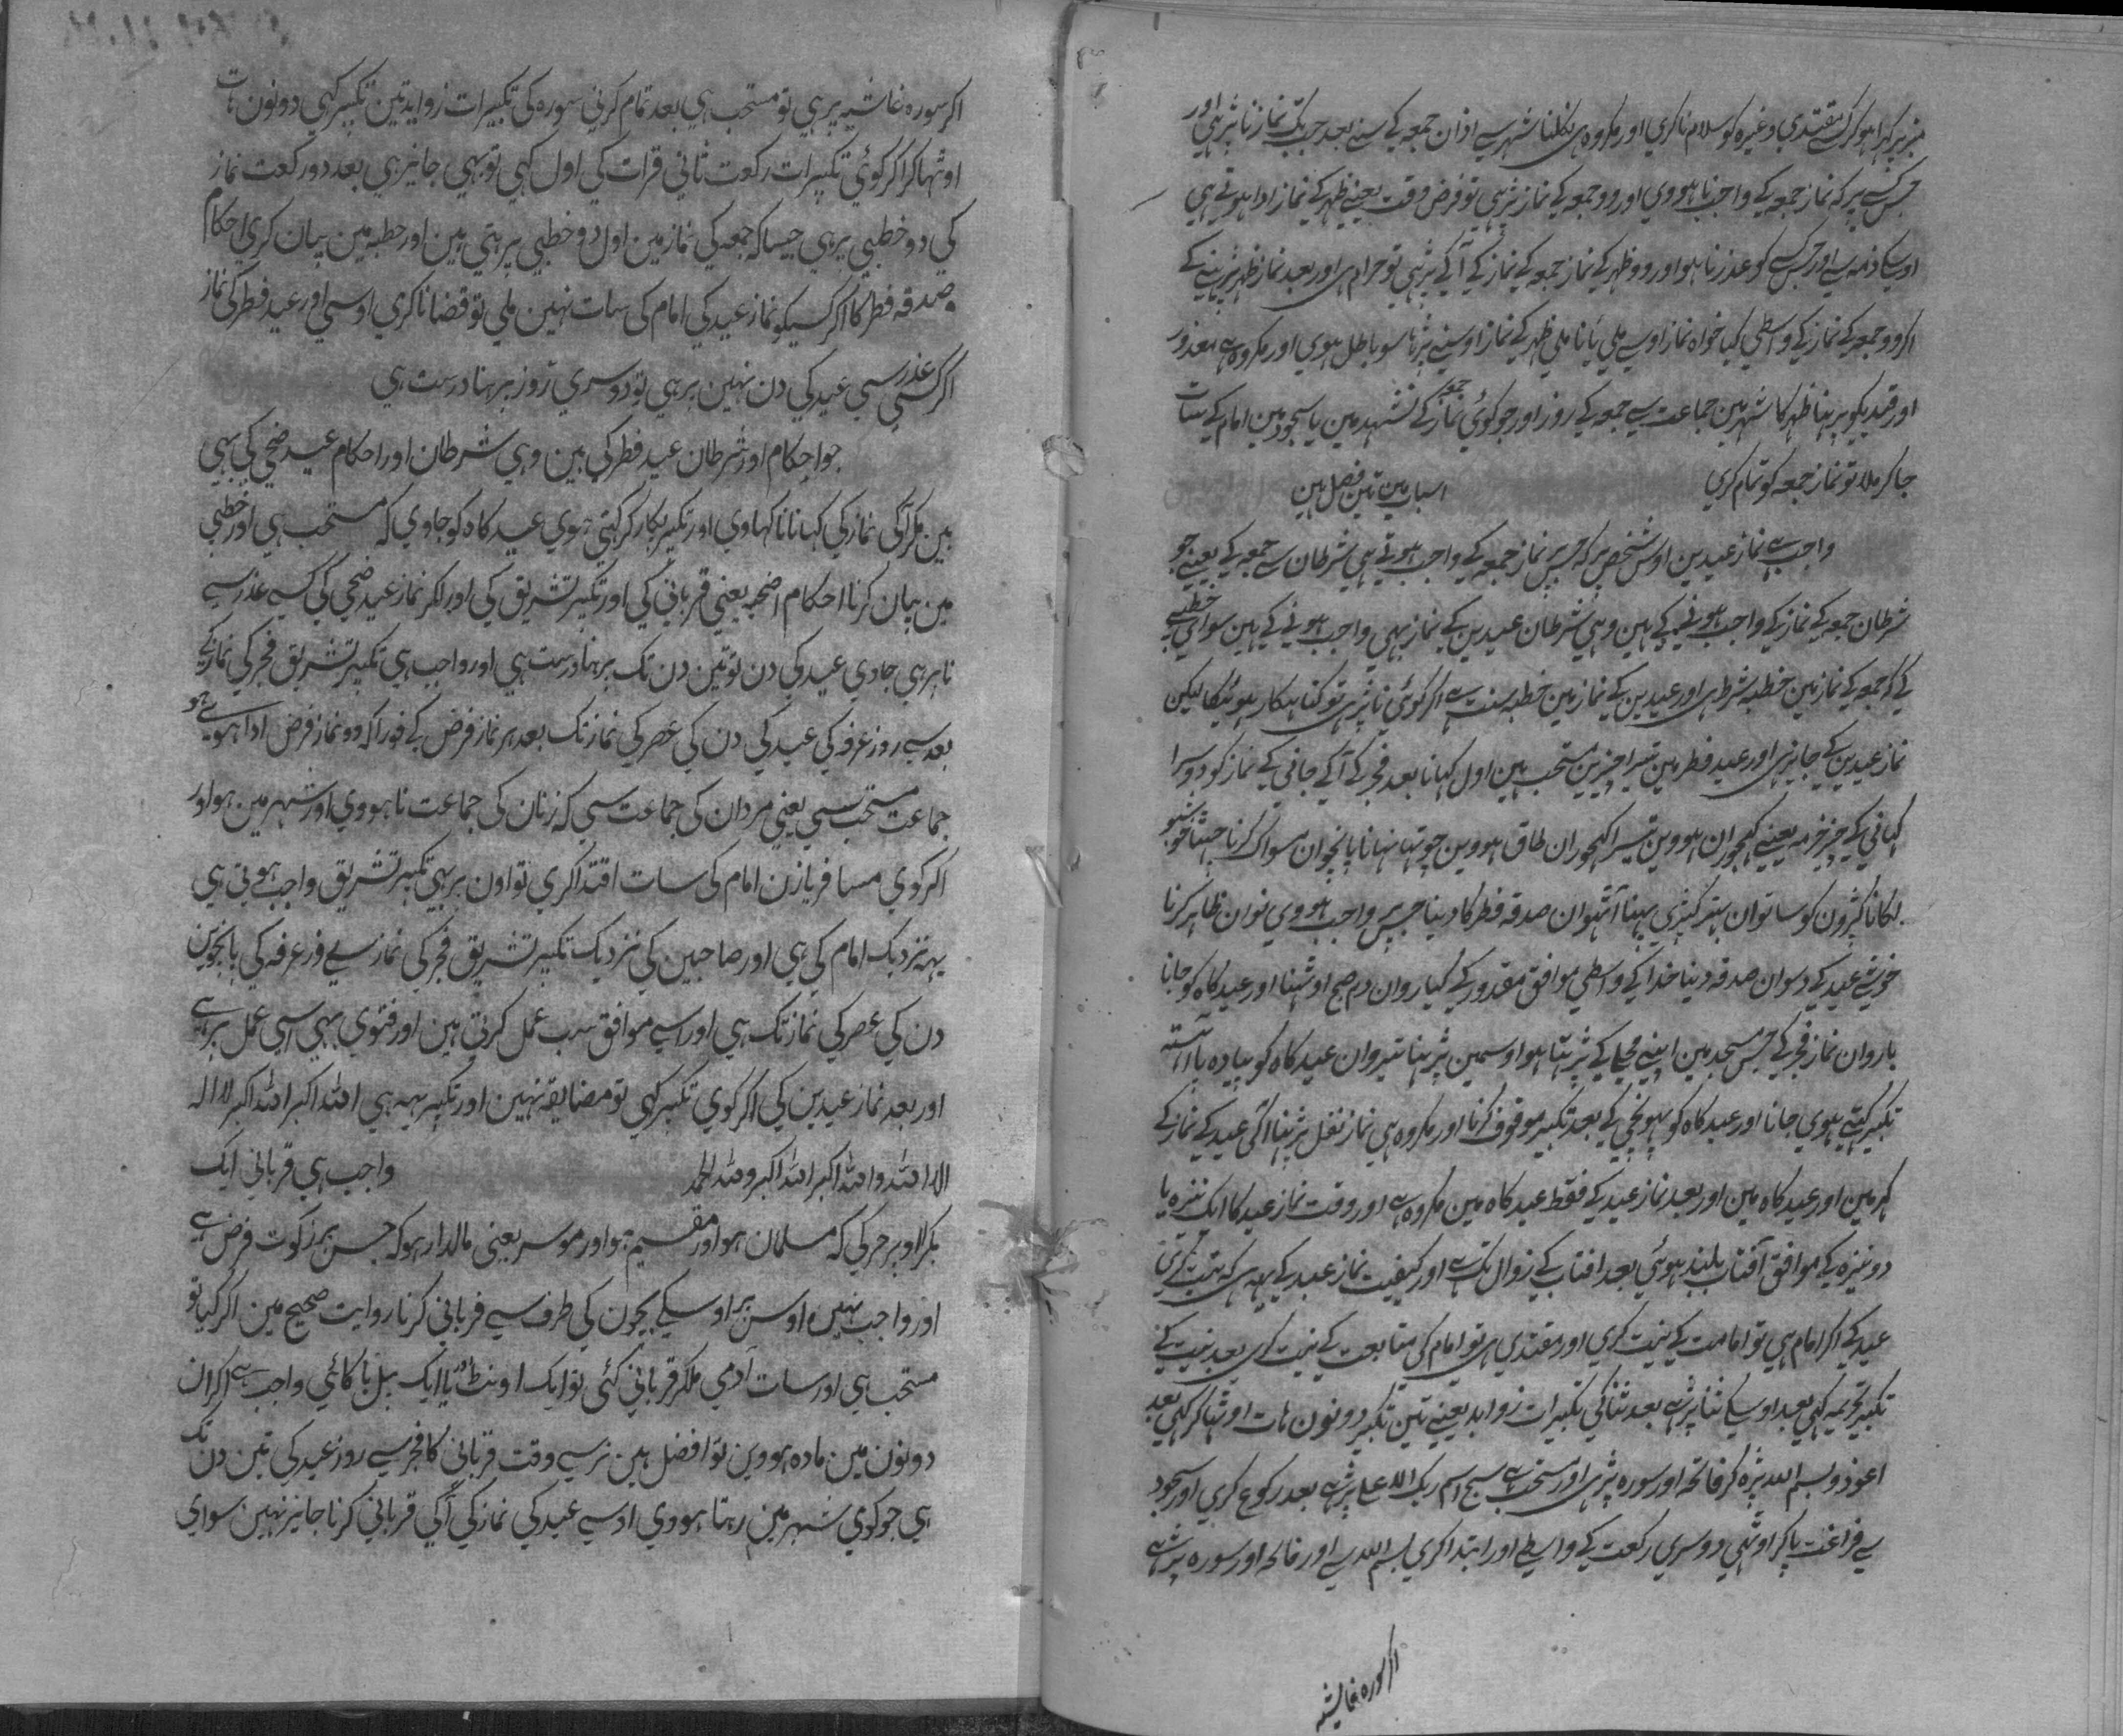 منبر پر کہرا ہو کر مقتدی وغیرہ کو سلام نا کری اور مکروہ ہی نکلنا شہر سے اذان جمعہ کے سنے بعد جب تک نماز نا پڑہی اور
جس کسے پر کہ نماز جمعہ کے واجب نا ہووی اور وو جمعہ کے نماز پڑہی تو فرض وقت یعنے ظہر کے نماز ادا ہوتے ہی
اوسکے ذمہ سے اور جس کسے کو عذر نا ہو اور وو ظہر کے نماز جمعہ کے نماز کے آگے پڑہی تو حرام ہی اور بعد نماز ظہر پڑہنے کے
اگر وو جمعہ کے نماز کے واسطے گیا خواہ نماز اوسے ملی یا نا ملی ظہر کے نماز اوسنے پڑہا سو باطل ہوی اور مکروہ ہے معذور
اور قیدیکو پڑہنا ظہر کا شہر مین جماعت سے جمعہ کے روز اور جو کوئی نماز جمعہ کے تشہد مین یا سجود مین امام کے سات
جا کر ملا تو نماز جمعہ کو تمام کری اسباب مین تین فصل ہین
واجب ہے نماز عیدین اوس شخص پر کہ جسپر نماز جمعہ کے واجب ہوتے ہی شرطان سے جمعہ کے یعنے جو
شرطان جمعہ کے نماز کے واجب ہونے کے ہین وہی شرطان عیدین کے نماز بہی واجب ہونے کے ہین سوای خطبے
کے کہ جمعہ کے نماز مین خطبہ شرط ہی اور عیدین کے نماز مین خطبہ سنت ہے اگر کوئی نا پڑہی تو گناہگار ہوئیگا لیکن
نماز عیدین کے جایز ہی اور عید فطر مین تیرا چیزین مستحب ہین اول کہانا بعد فجر کے آگے جانی کے نماز کو دوسرا
کہانی کے چیز خرمہ یعنے کہجوران ہووین تیسرا کہجوران طاق ہووین چوتہا نہانا پانچوان مسواک کرنا چہٹا خوشبو
لگانا کپڑون کو ساتوان بہتر کپڑی پہنا آٹہوان صدقہ فطر کا دینا جسپر واجب ہووی نوان ظاہر کرنا
خوشے عید کے دسوان صدقہ دینا خدا کے واسطی موافق مقدور کے گیاروان دم صبح اوٹہنا اور عیدگاہ کو جانا
باروان نماز فجر کے جس مسجد مین اپنے محلے کے پڑہتا ہو اوسمین پڑہنا تیروان عیدگاہ کو پیادہ پا آہستہ
تکبیر کہتے ہوی جانا اور عیدگاہ کو پہونچے کے بعد تکبیر موقوف کرنا اور مکروہ ہی نماز نفل پڑہنا آگی عید کے نماز کے
گہر مین اور عیدگاہ مین اور بعد نماز عید کے فقط عیدگاہ مین مکروہ ہے اور وقت نماز عید کا ایک نیزہ یا
دو نیزہ کے موافق آفتاب بلند ہوئی بعد افتاب کے زوال تک ہے اور کیفیت نماز عید کے یہہ ہی کہ نیت کری
عید کے اگر امام ہی تو امامت کے نیت کری اور مقتدی ہی تو امام کی متابعت کے نیت کری بعد نیت کے
تکبیر تحریمہ کہی بعد اوسکے ثنا پڑہے بعد ثنا کی تکبیرات زواید یعنے تین تکبیر دونون ہات اوٹہا کر کہی بعد
اعوذ و بسم اللہ پڑہ کر فاتحہ اور سورہ پڑہی اور مستحب ہے سبح اسم ربک الاعلے پڑہے بعد رکوع کری اور سجود
سے فراغت پا کر اوٹہی دوسری رکعت کے واسطے اور ابتدا کری بسم اللہ سے اور فاتحہ اور سورہ پڑہے
اگر سورہ غاشیہ
اگر سورہ غاشیہ پرہی تو مستحب ہی بعد تمام کرنی سورہ کی تکبیرات زواید تین تکبیر کہی دونون ہات
اوٹہا کر اگر کوئی تکبیرات رکعت ثانی قرات کی اول کہی تو بہی جایز ہی بعد دو رکعت نماز
کی دو خطبی پرہی جیسا کہ جمعہ کی نماز مین اول دو خطبی پرہتی ہین اور خطبہ مین بیان کری احکام
صدقہ فطر کا اگر کسیکو نماز عید کی امام کی سات نہین ملی تو قضا نا کری اوسی اور عید فطر کی نماز
اگر کسی عذر سی عید کی دن نہین پرہی تو دوسری روز پرہنا درست ہی
جو احکام اور شرطان عید فطر کی ہین وہی شرطان اور احکام عید ضحی کی بہی
ہین مگر آگی نماز کی کہانا نا کہاوی اور تکبیر پکار کر کہتی ہوی عیدگاہ کو جاوی کہ مستحب ہی اور خطبی
مین بیان کرنا احکام اضحیہ یعنی قربانی کی اور تکبیر تشریق کی اور اگر نماز عید ضحی کی کسے عذر سے
نا پرہی جاوی عید کی دن تو تین دن تک پرہنا درست ہی اور واجب ہی تکبیر تشریق فجر کی نماز کے
بعد سے روز عرفہ کی عید کی دن کی عصر کی نماز تک بعد ہر نماز فرض کے فورا کہ وو نماز فرض ادا ہوے ہو
جماعت مستحب سی یعنی مردان کی جماعت سی کہ زنان کی جماعت نا ہووی اور شہر مین ہو اور
اگر کوی مسافر یا زن امام کی سات اقتدا کری تو اون پر بہی تکبیر تشریق واجب ہوتی ہی
یہہ نزدیک امام کی ہی اور صاحبین کی نزدیک تکبیر تشریق فجر کی نماز سے روز عرفہ کی پانچوین
دن کی عصر کی نماز تک ہی اور اسے موافق سب عمل کرتی ہین اور فتوی بہی اسی عمل پر ہے
اور بعد نماز عیدین کی اگر کوی تکبیر کہی تو مضایقہ نہین اور تکبیر یہہ ہی اللہ اکبر اللہ اکبر لا الہ
الا اللہ واللہ اکبر اللہ اکبر وللہ الحمد واجب ہی قربانی ایک
بکرا اوپر حر کی کہ مسلمان ہو اور مقیم ہو اور موسر یعنی مالدار ہو کہ جس پر زکوت فرض ہے
اور واجب نہین اوس پر اوسکے بچون کی طرف سے قربانی کرنا روایت صحیح مین اگر کیا تو
مستحب ہی اور سات آدمی ملکر قربانی کئی تو ایک اونٹ اور یا ایک بیل یا گائی واجب ہے اگر ان
دونون مین مادہ ہووین تو افضل ہین نر سے وقت قربانی کا فجر سے روز عید کی تین دن تک
ہی جو کوی شہر مین رہتا ہووی اوسے عید کی نماز کی آگی قربانی کرنا جایز نہین سوای